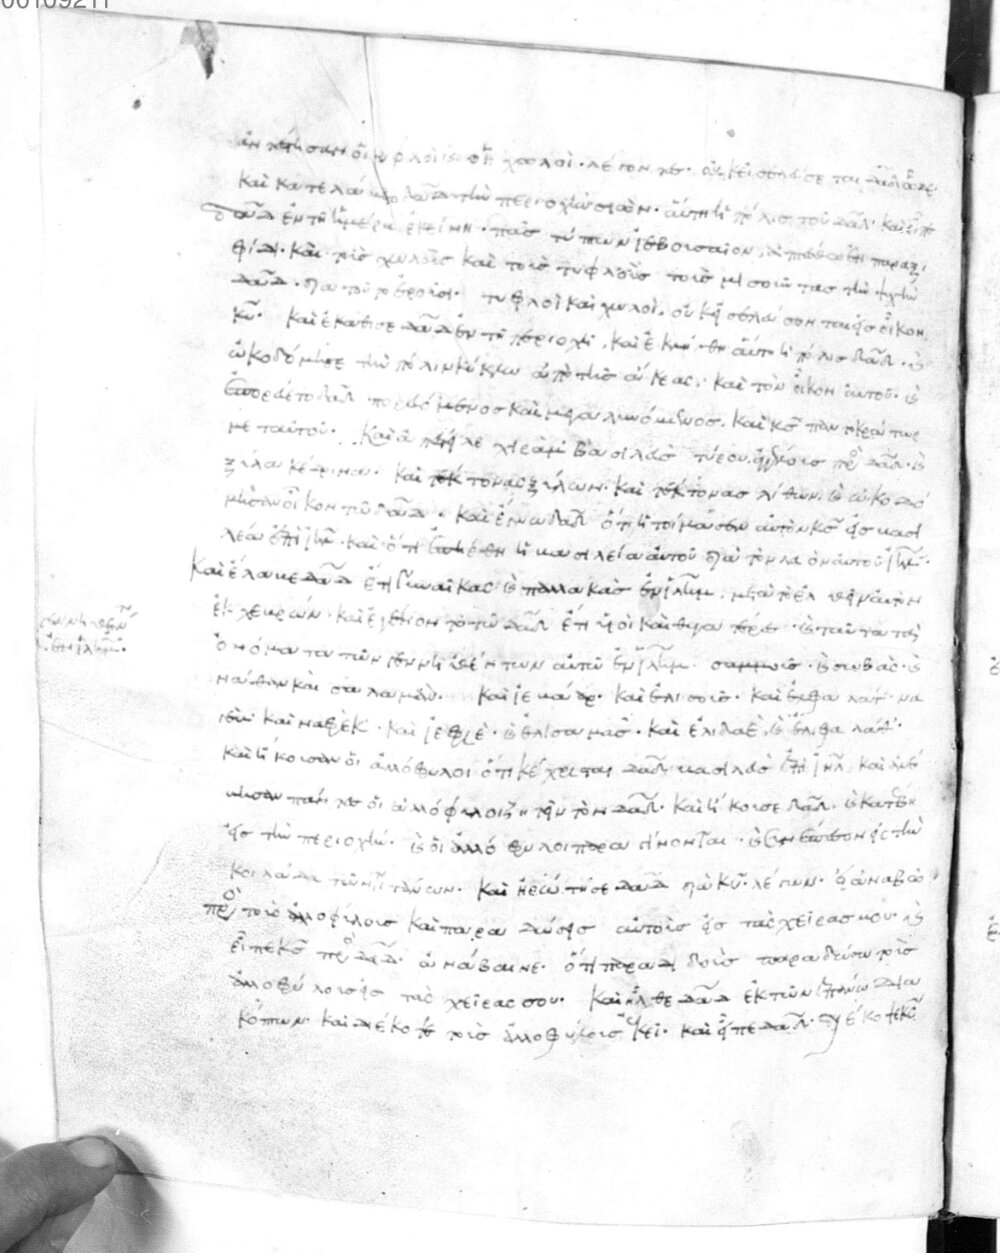 00109211
ἀντέστησαν οἱ τυφλοὶ καὶ οἱ χωλοὶ· λέγοντες· οὐκ εἰσελεύσεται δᾶδ ὧδε·
καὶ κατελάβετο δᾶδ τὴν περιοχὴν σιών· αὕτη ἡ πόλις τοῦ δᾶδ· καὶ εἶπε
δᾶδ ἐν τῇ ἡμέρᾳ ἐκείνῃ· πᾶς τύπτων ἰεβουσαῖον, ἁπτέσθω ἐν παραξι
φίδι· καὶ τοὺς χωλοὺς καὶ τοὺς τυφλοὺς τοὺς μισοῦντας τὴν ψυχὴν
δᾶδ· διὰ τοῦτο ἐροῦσι· τυφλοὶ καὶ χωλοὶ, οὐκ εἰσελεύσονται εἰς οἶκον
κυ· καὶ ἐκάθισε δᾶδ ἐν τῇ περιοχῇ, καὶ ἐκλήθη αὕτη ἡ πόλις δᾶδ· καὶ
ὠκοδόμησε τὴν πόλιν κύκλω ἀπὸ τῆς ἄκρας· καὶ τὸν οἶκον αὐτοῦ· καὶ
ἐπορεύετο δᾶδ πορευόμενος καὶ μεγαλυνόμενος· καὶ κς παντοκράτωρ
μεταὐτοῦ· καὶ ἀπέστειλε χιρὰμ βασιλεὺς τύρου ἀγγέλους πρὸς δᾶδ· καὶ
ξύλα κέδρινα· καὶ τέκτονας ξύλων· καὶ τέκτονας λίθων, καὶ ὠκοδό
μησαν οἶκον τῶ δᾶδ· καὶ ἔγνω δᾶδ ὅτι ἡτοίμασεν αὐτὸν κς εἰς βασι
λέα ἐπὶ ιηλ· καὶ ὅτι ἐπήρθη ἡ βασιλεία αὐτοῦ διὰ τὸν λαὸν αὐτοῦ ιηλ·
καὶ ἔλαβε δᾶδ ἔτι γυναῖκας καὶ παλλακὰς ἐν ιλημ, μετὰ τὸ ἐλθεῖν αὐτὸν
ἐκ χεβρών· καὶ ἐγένοντο τῶ δᾶδ ἔτι υἱοὶ καὶ θυγατέρες· καὶ ταῦτα τὰ
ὀνόματα τῶν γεννηθέντων αὐτῶ ἐν ιλημ· σαμμοῦς· καὶ σωβὰς· καὶ
νάθαν καὶ σαλαμὼν· καὶ ἰεβαάρ· καὶ ἐλισοῦς· καὶ
καὶ ναφέκ· καὶ ἰεφιὲ· καὶ ἐλισαμὰς· καὶ ἐλιδαὲ, καὶ ἐλιφαλάθ·
καὶ ἤκουσαν οἱ ἀλλόφυλοι ὅτι κέχρισται δᾶδ βασιλεὺς ἐπὶ ιηλ, καὶ ἀνέ
βησαν πάντες οἱ ἀλλόφυλοι ζητεῖν τὸν δᾶδ· καὶ ἤκουσε δᾶδ· καὶ κατέβη
εἰς τὴν περιοχήν· καὶ οἱ ἀλλόφυλοι παραγίνονται· καὶ συνέπεσον εἰς τὴν
κοιλάδα τῶν τιτάνων· καὶ ἠρώτησε δᾶδ διὰ κυ· λέγων· εἰ ἀναβῶ
πρὸς τοὺς ἀλλοφύλους καὶ παραδώσεις αὐτοὺς εἰς τὰς χεῖρας μου· καὶ
εἶπε κς πρὸς δᾶδ· ἀνάβαινε· ὅτι παραδιδοὺς παραδώσω τοὺς
ἀλλοφύλους εἰς τὰς χεῖρας σου· καὶ ἦλθε δᾶδ ἐκ τῶν ἐπάνω δια
κοπῶν· καὶ διέκοψε τοὺς ἀλλοφύλους ἐκεῖ· καὶ εἶπε δᾶδ· διέκοψε κς